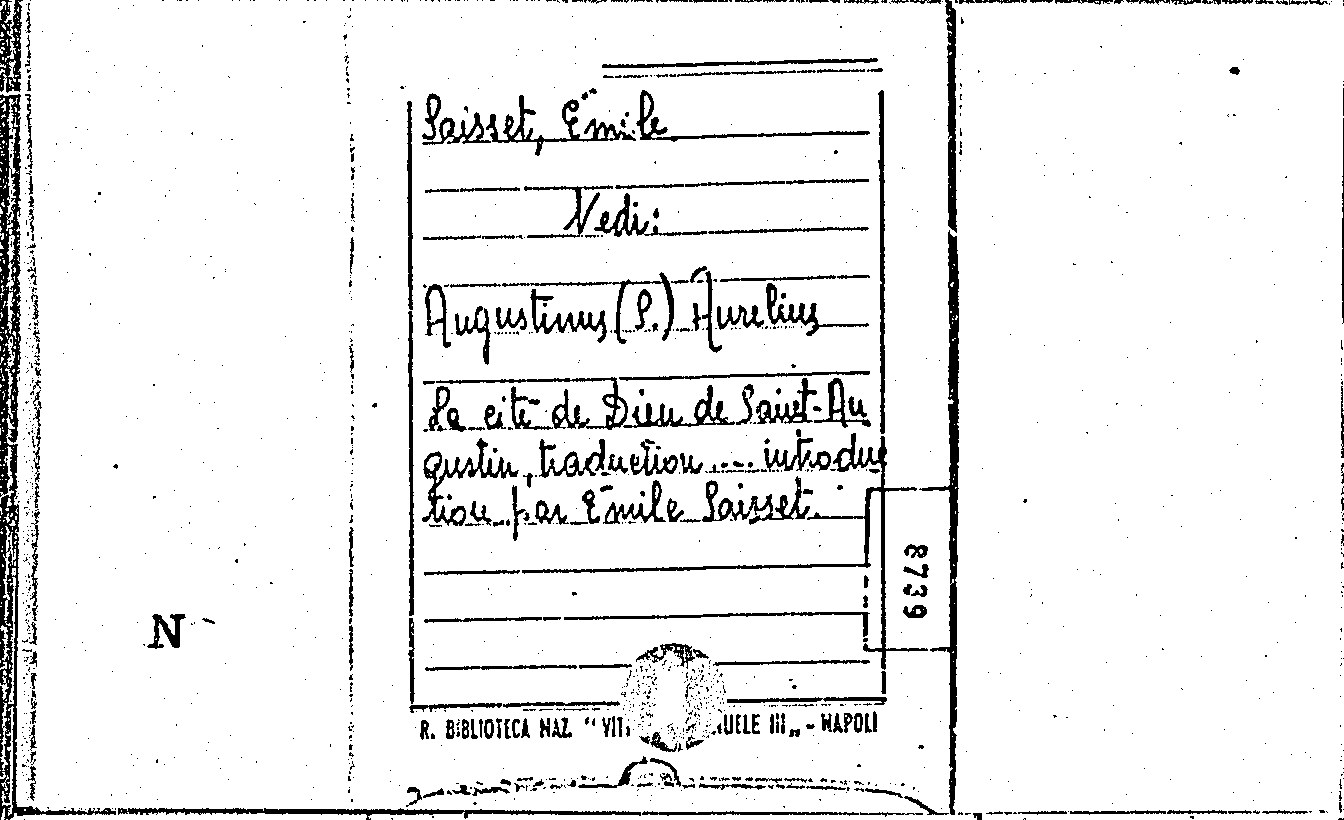 Saisset, Émile
Vedi:
Augustinus (S.) Aurelius
La cité de Dieu de Saint-Au
gustin, traduction .... introduc
tion par Émile Saisset.
8739
N
R. BIBLIOTECA NAZ. " VIT. UELE III „ - NAPOLI